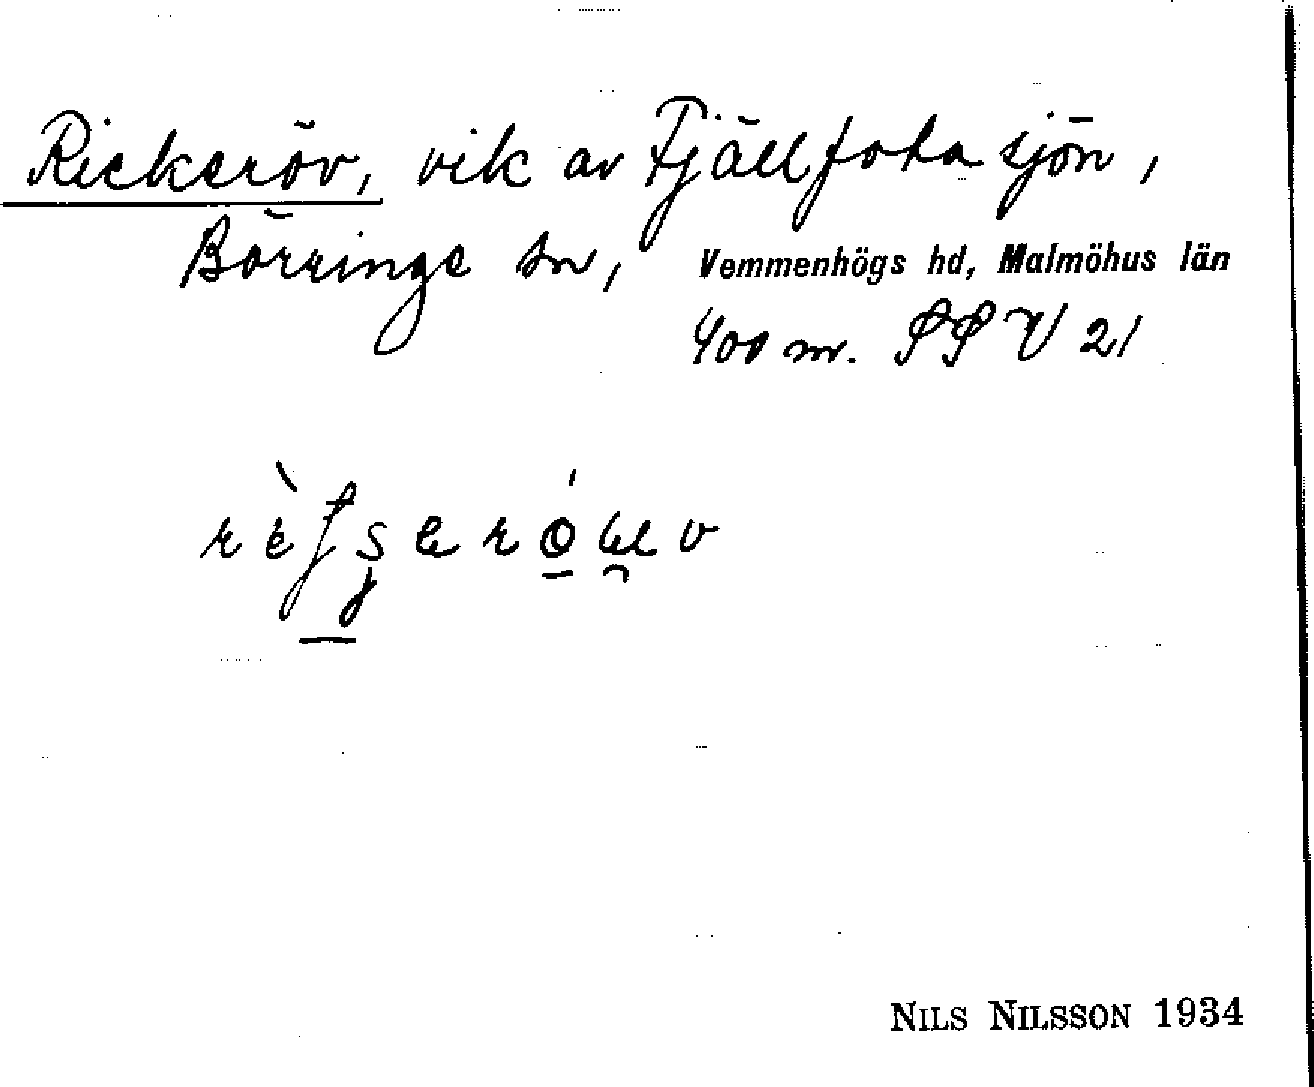 Rickeröv, vik av Fjällfotasjön,
Börringe sn, Vemmenhögs hd, Malmöhus län
400 m. SSV 21
NILS NILSSON 1934